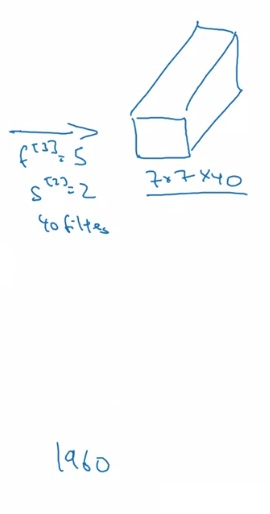 f^[3] = 5
s^[2] = 2
40 filtes
7x7x40
1960